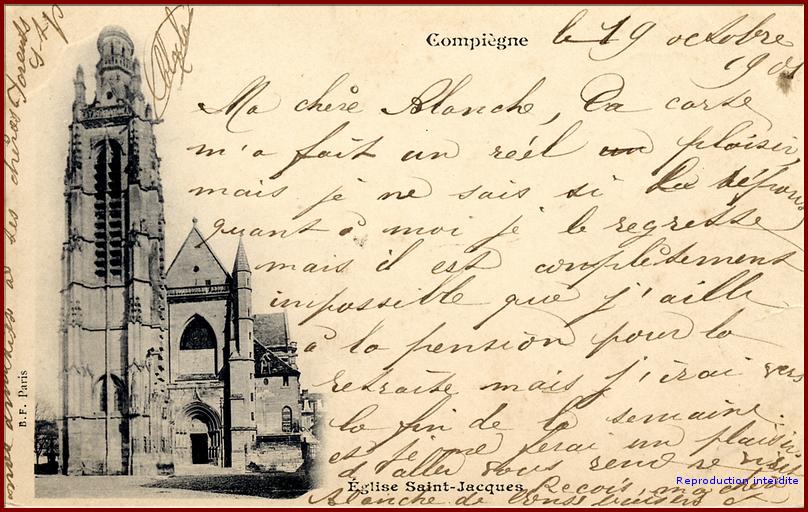 Compiègne
le 19 octobre
1901
Ma chère Blanche, Ta carte
m'a fait un réel plaisir,
mais je ne sais si
quant à moi je le regrette
mais il est complètement
impossible que j'aille
à la pension pour la
retraite mais j'irai vers
la fin de la semaine.
et je me ferai un plaisir
d'aller vous rend re visite
Reçois, ma chère
Blanche de bons baisers
Église Saint-Jacques
B. F. Paris
Reproduction interdite